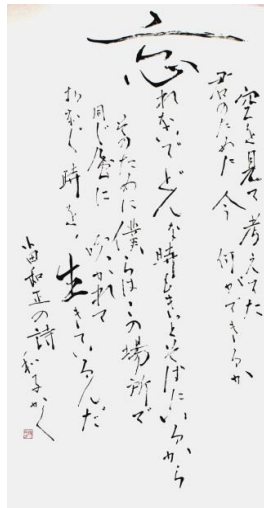 空を見て考えてた
君のために 今 何ができるか
忘れないでどんな時もきっとそばにいるから
そのために僕らはこの場所で
同じ風に 吹かれて
おなじ時を、生きているんだ
小田和正の詩